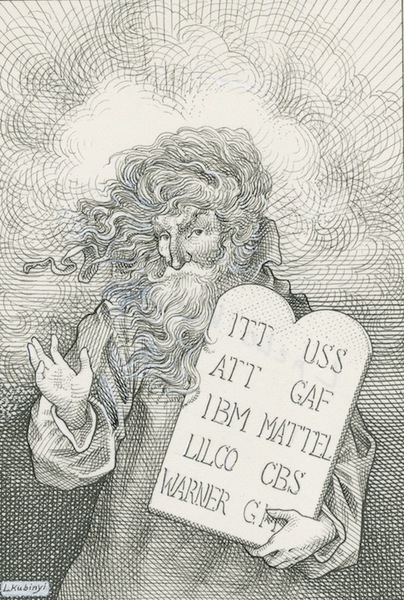 ITT USS
ATT GAF
IBM MATTEL
LILCO CBS
WARNER
L.Kubinyi